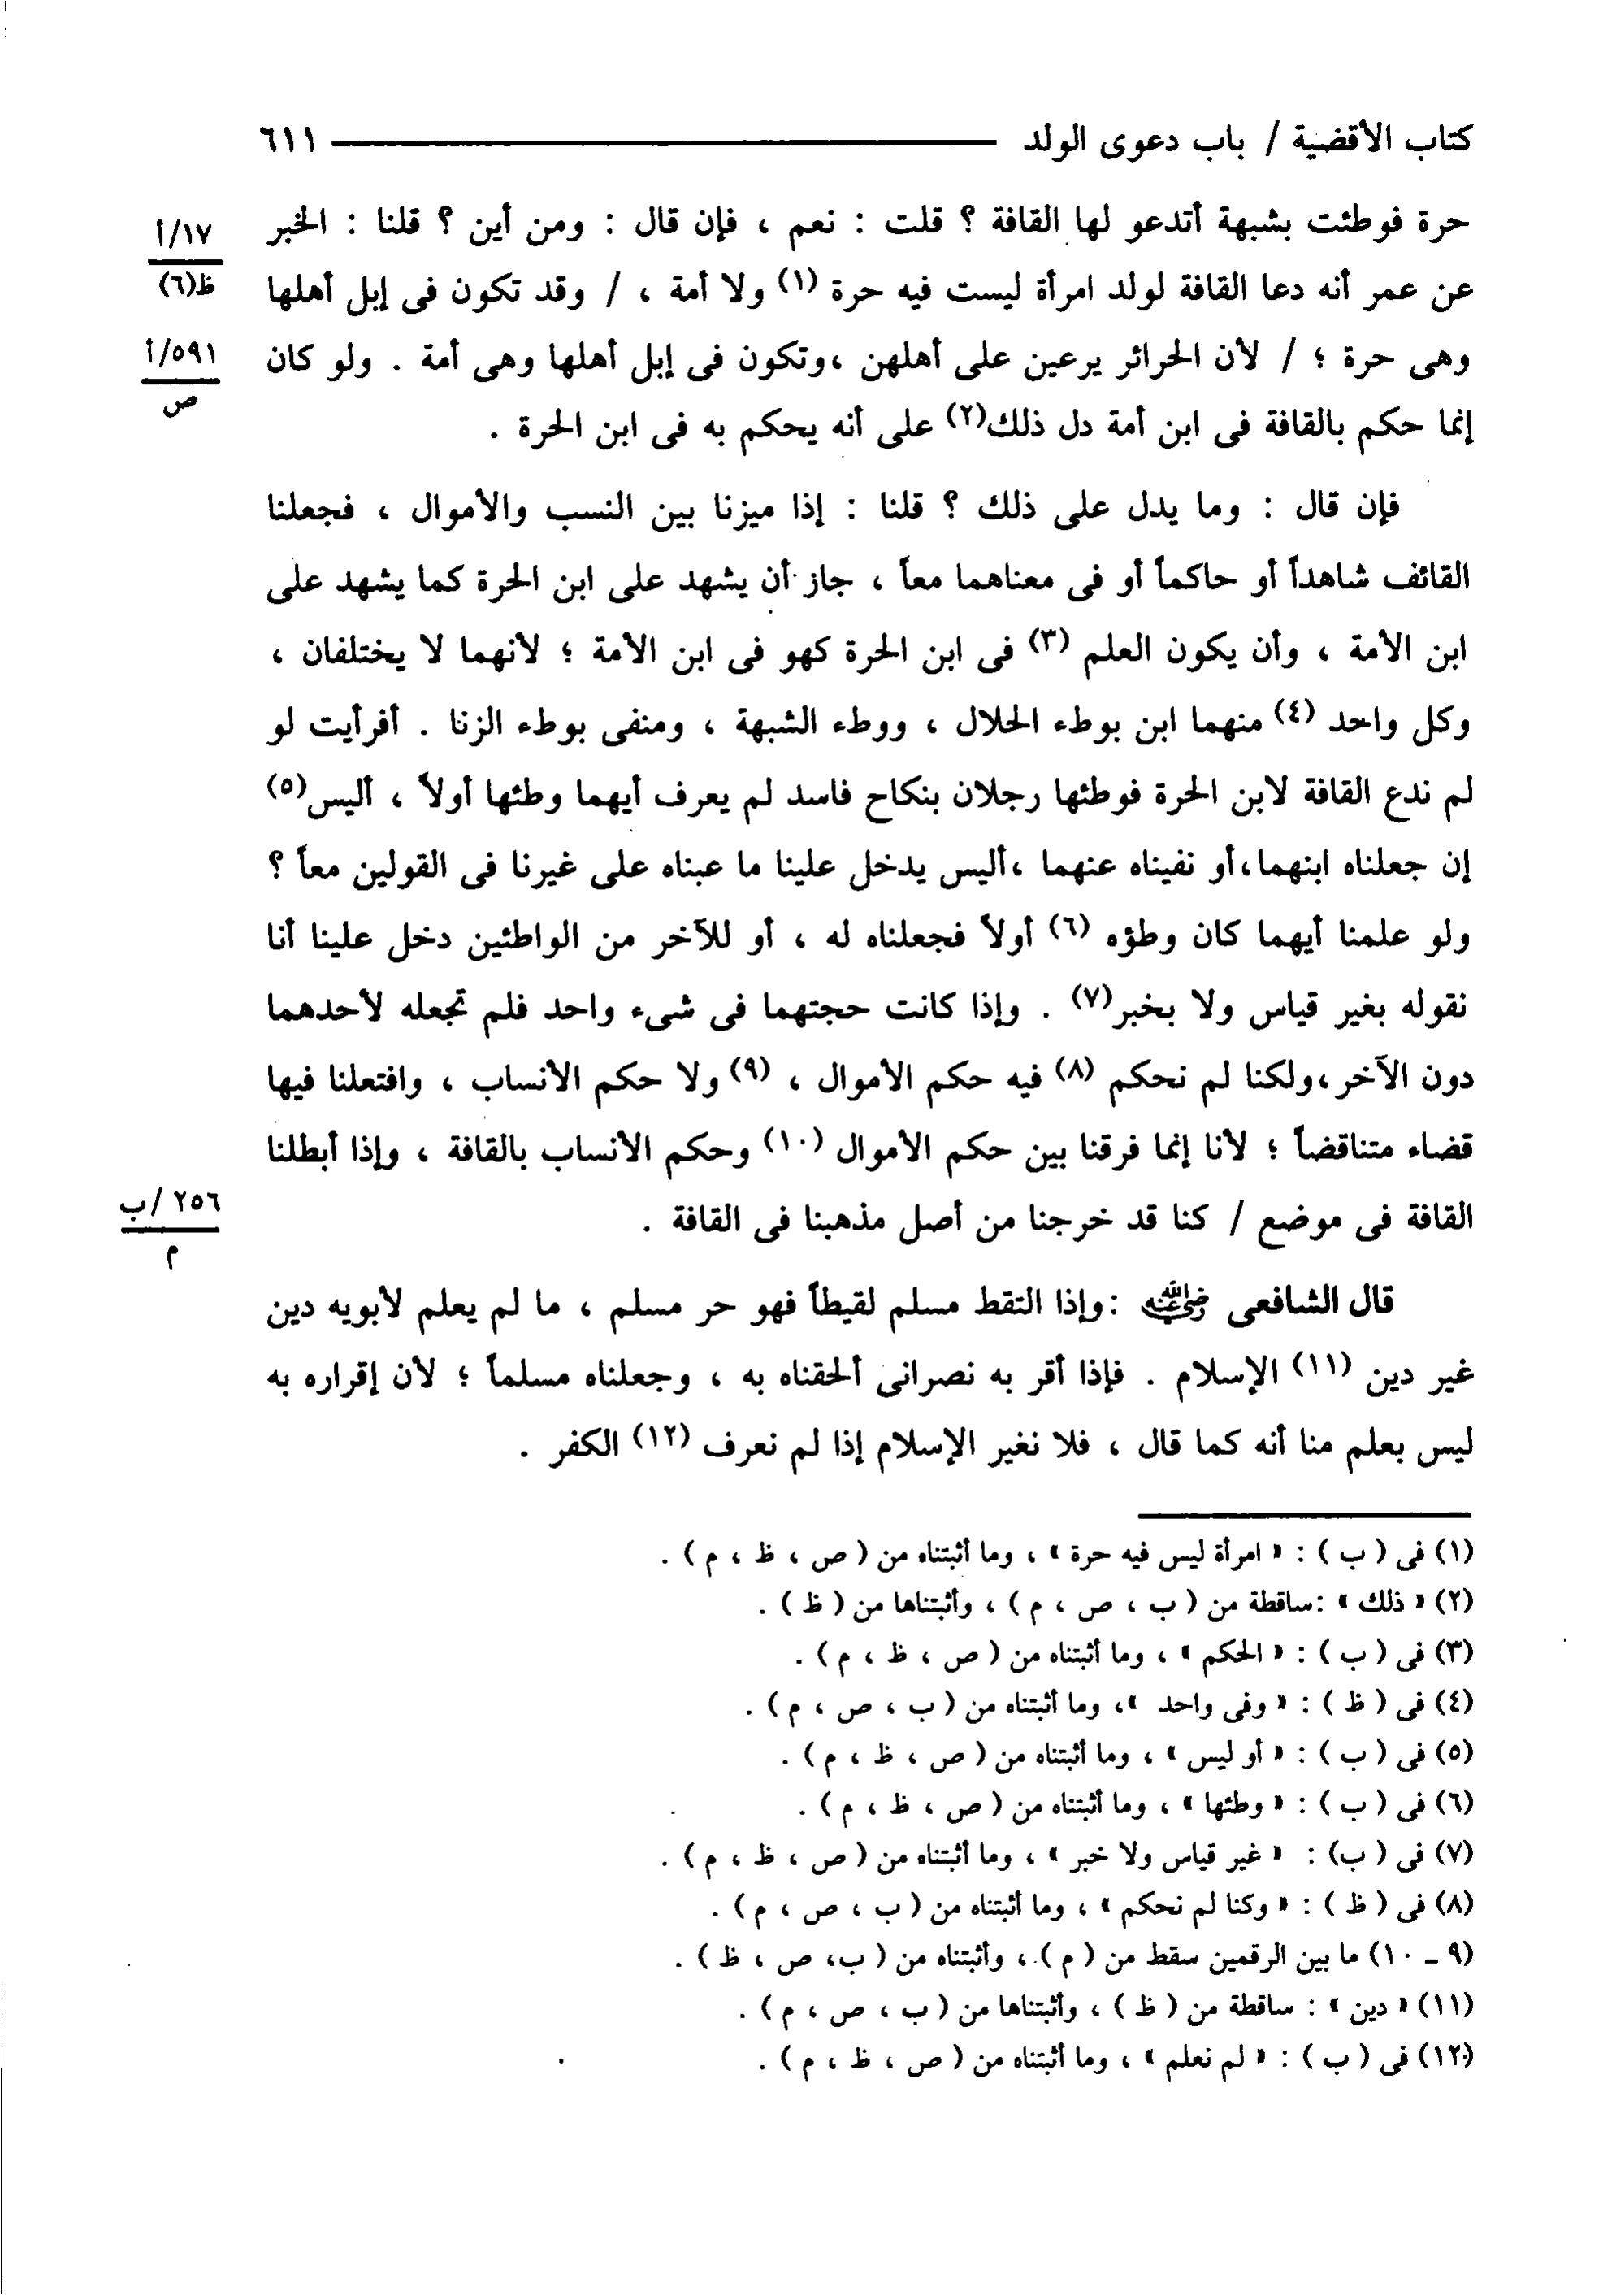 كتاب الأقضية / باب دعوى الولد ٦١١
حرة فوطئت بشبهة أتدعو لها القافة ؟ قلت : نعم ، فإن قال : ومن أين ؟ قلنا : الخبر
١٧/أ
ظ(٦)
عن عمر أنه دعا القافة لولد امرأة ليست فيه حرة (١) ولا أمة ، / وقد تكون فى إبل أهلها
وهى حرة ؛ / لأن الحرائر يرعين على أهلهن ،وتكون فى إبل أهلها وهى أمة . ولو كان
٥٩١/أ
ص
إنما حكم بالقافة فى ابن أمة دل ذلك(٢) على أنه يحكم به فى ابن الحرة .
فإن قال : وما يدل على ذلك ؟ قلنا : إذا ميزنا بين النسب والأموال ، فجعلنا
القائف شاهداً أو حاكماً أو فى معناهما معاً ، جاز أن يشهد على ابن الحرة كما يشهد على
ابن الأمة ، وأن يكون العلم (٣) فى ابن الحرة كهو فى ابن الأمة ؛ لأنهما لا يختلفان ،
وكل واحد (٤) منهما ابن بوطء الحلال ، ووطء الشبهة ، ومنفى بوطء الزنا . أفرأيت لو
لم ندع القافة لابن الحرة فوطئها رجلان بنكاح فاسد لم يعرف أيهما وطئها أولاً ، أليس(٥)
إن جعلناه ابنهما،أو نفيناه عنهما ،أليس يدخل علينا ما عبناه على غيرنا فى القولين معاً ؟
ولو علمنا أيهما كان وطؤه (٦) أولاً فجعلناه له ، أو للآخر من الواطئين دخل علينا أنا
نقوله بغير قياس ولا بخبر(٧) . وإذا كانت حجتهما فى شىء واحد فلم تجعله لأحدهما
دون الآخر،ولكنا لم نحكم (٨) فيه حكم الأموال ، (٩) ولا حكم الأنساب ، وافتعلنا فيها
قضاء متناقضاً ؛ لأنا إنما فرقنا بين حكم الأموال (١٠) وحكم الأنساب بالقافة ، وإذا أبطلنا
القافة فى موضع / كنا قد خرجنا من أصل مذهبنا فى القافة .
٢٥٦/ب
م
قال الشافعى رضي الله عنه :وإذا التقط مسلم لقيطاً فهو حر مسلم ، ما لم يعلم لأبويه دين
غير دين (١١) الإسلام . فإذا أقر به نصرانى ألحقناه به ، وجعلناه مسلماً ؛ لأن إقراره به
ليس بعلم منا أنه كما قال ، فلا نغير الإسلام إذا لم نعرف (١٢) الكفر .
(١) فى ( ب ) : « امرأة ليس فيه حرة » ، وما أثبتناه من ( ص ، ظ ، م ) .
(٢) « ذلك » :ساقطة من ( ب ، ص ، م ) ، وأثبتناها من ( ظ ) .
(٣) فى ( ب ) : « الحكم » ، وما أثبتناه من ( ص ، ظ ، م ) .
(٤) فى ( ظ ) : « وفى واحد »، وما أثبتناه من ( ب ، ص ، م ) .
(٥) فى ( ب ) : « أو ليس » ، وما أثبتناه من ( ص ، ظ ، م ) .
(٦) فى ( ب ) : « وطئها » ، وما أثبتناه من ( ص ، ظ ، م ) .
(٧) فى ( ب) : « غير قياس ولا خبر » ، وما أثبتناه من ( ص ، ظ ، م ) .
(٨) فى ( ظ ) : « وكنا لم نحكم » ، وما أثبتناه من ( ب ، ص ، م ) .
(٩ ـ ١٠) ما بين الرقمين سقط من ( م ) ، وأثبتناه من ( ب، ص ، ظ ) .
(١١) « دين » : ساقطة من ( ظ ) ، وأثبتناها من ( ب ، ص ، م ) .
(١٢) فى ( ب ) : « لم نعلم » ، وما أثبتناه من ( ص ، ظ ، م ) .